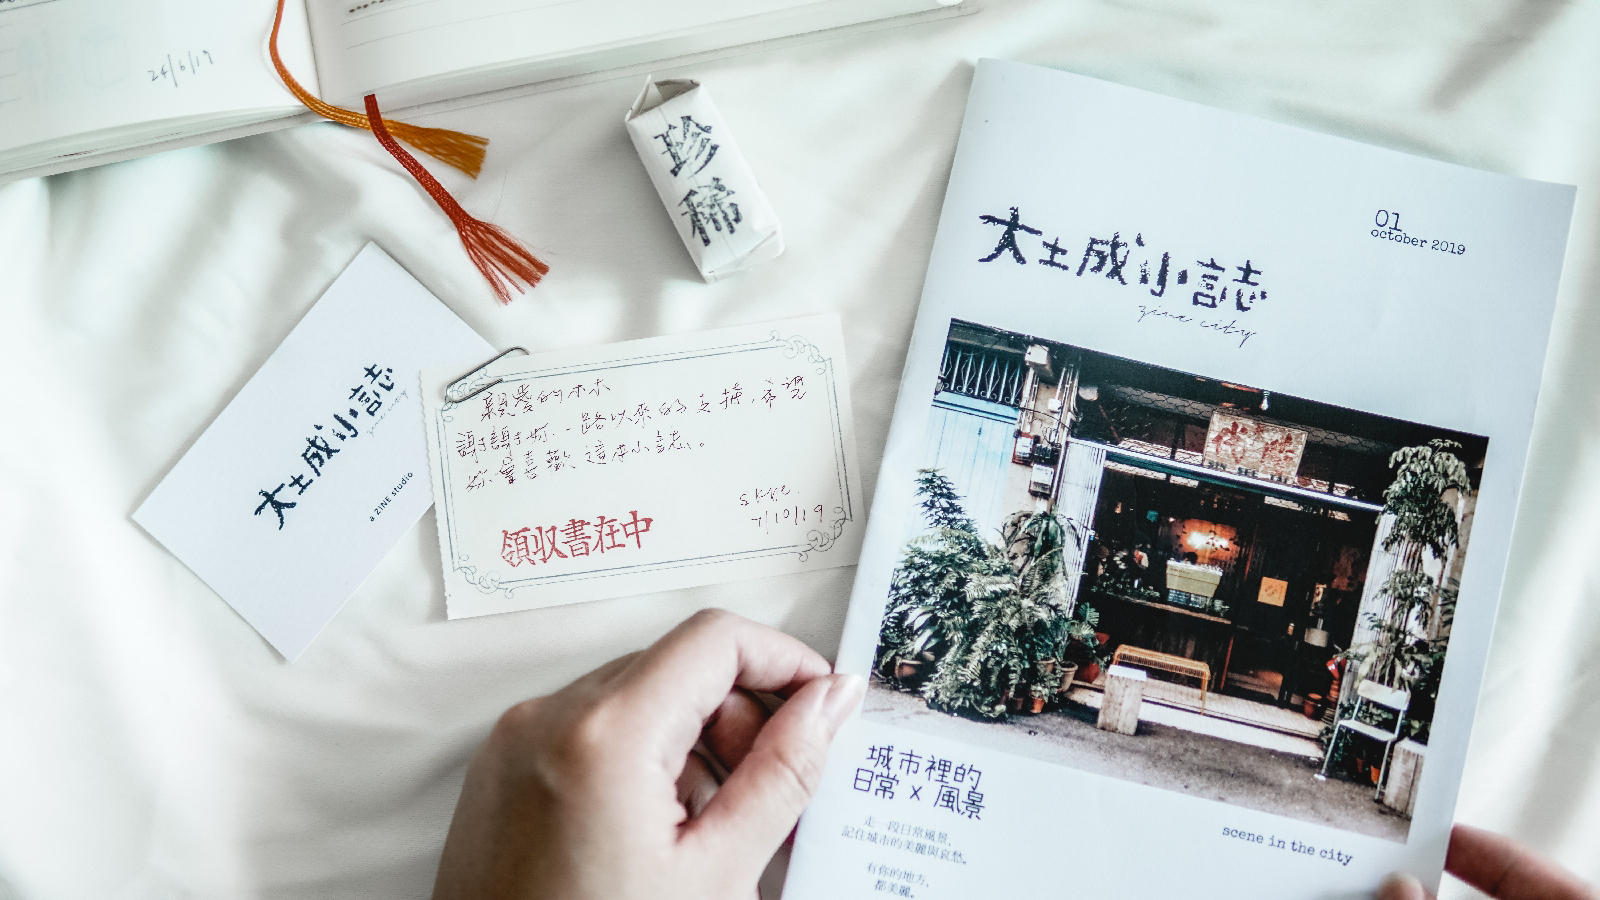 24/6/19
珍
稀
大土成小誌
zine city
01
october 2019
大土成小誌
zine city
a ZINE studio
親愛的木木
謝謝妳一路以來的支持,希望
妳會喜歡這本小誌。
7/10/19
領収書在中
城市裡的
日常 x 風景
走一段日常風景,
記住城市的美麗與哀愁。
有你的地方,
都美麗。
scene in the city